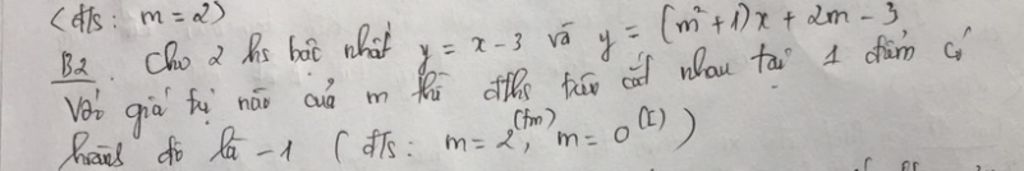 (đ/s: m = 2)
B2. Cho 2 hs bậc nhất y = x - 3 và y = (m² + 1)x + 2m - 3
Với giá trị nào của m thì đths trên cắt nhau tại 1 điểm có
hoành độ là -1 (đ/s: m = 2 (tm), m = 0 (L))